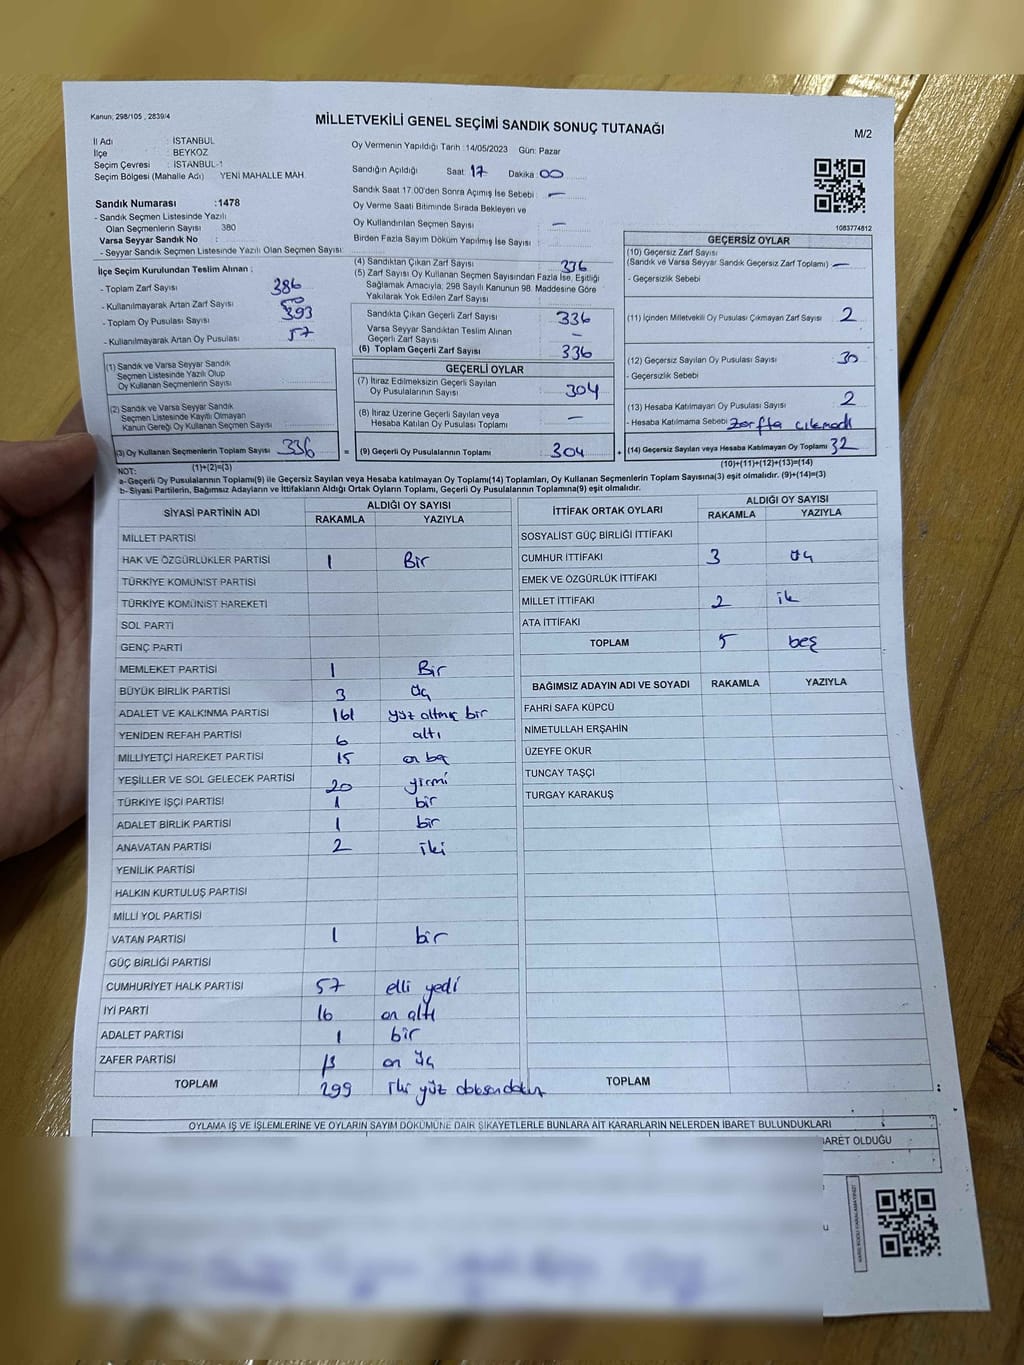 Kanun: 298/105 , 2839/4
MİLLETVEKİLİ GENEL SEÇİMİ SANDIK SONUÇ TUTANAĞI
M/2
İl Adı : İSTANBUL
İlçe : BEYKOZ
Seçim Çevresi : İSTANBUL-1
Seçim Bölgesi (Mahalle Adı) YENİ MAHALLE MAH.
Sandık Numarası :1478
- Sandık Seçmen Listesinde Yazılı
Olan Seçmenlerin Sayısı 380
Varsa Seyyar Sandık No :
- Seyyar Sandık Seçmen Listesinde Yazılı Olan Seçmen Sayısı:
Oy Vermenin Yapıldığı Tarih :14/05/2023 Gün: Pazar
Sandığın Açıldığı Saat 17 Dakika 00
Sandık Saat 17.00'den Sonra Açımış İse Sebebi : —
Oy Verme Saati Bitiminde Sırada Bekleyen ve
Oy Kullandırılan Seçmen Sayısı : —
Birden Fazla Sayım Döküm Yapılmış İse Sayısı :
1083774812
İlçe Seçim Kurulundan Teslim Alınan ;
- Toplam Zarf Sayısı 386
- Kullanılmayarak Artan Zarf Sayısı 50
- Toplam Oy Pusulası Sayısı 393
- Kullanılmayarak Artan Oy Pusulası 57
(1) Sandık ve Varsa Seyyar Sandık
Seçmen Listesinde Yazılı Olup
Oy Kullanan Seçmenlerin Sayısı :
(2) Sandık ve Varsa Seyyar Sandık
Seçmen Listesinde Kayıtlı Olmayan
Kanun Gereği Oy Kullanan Seçmen Sayısı :
(3) Oy Kullanan Seçmenlerin Toplam Sayısı 336
(1)+(2)=(3)
(4) Sandıktan Çıkan Zarf Sayısı 336
(5) Zarf Sayısı Oy Kullanan Seçmen Sayısından Fazla İse, Eşitliği
Sağlamak Amacıyla, 298 Sayılı Kanunun 98. Maddesine Göre
Yakılarak Yok Edilen Zarf Sayısı :
Sandıkta Çıkan Geçerli Zarf Sayısı : 336
Varsa Seyyar Sandıktan Teslim Alınan
Geçerli Zarf Sayısı : —
(6) Toplam Geçerli Zarf Sayısı : 336
GEÇERLİ OYLAR
(7) İtiraz Edilmeksizin Geçerli Sayılan
Oy Pusulalarının Sayısı : 304
(8) İtiraz Üzerine Geçerli Sayılan veya
Hesaba Katılan Oy Pusulası Toplamı : —
= (9) Geçerli Oy Pusulalarının Toplamı : 304
GEÇERSİZ OYLAR
(10) Geçersiz Zarf Sayısı
(Sandık ve Varsa Seyyar Sandık Geçersiz Zarf Toplamı) —
- Geçersizlik Sebebi
(11) İçinden Milletvekili Oy Pusulası Çıkmayan Zarf Sayısı 2
(12) Geçersiz Sayılan Oy Pusulası Sayısı 30
- Geçersizlik Sebebi
(13) Hesaba Katılmayan Oy Pusulası Sayısı 2
- Hesaba Katılmama Sebebi zarfta çıkmadı
+ (14) Geçersiz Sayılan veya Hesaba Katılmayan Oy Toplamı 32
(10)+(11)+(12)+(13)=(14)
NOT:
a- Geçerli Oy Pusulalarının Toplamı(9) ile Geçersiz Sayılan veya Hesaba katılmayan Oy Toplamı(14) Toplamları, Oy Kullanan Seçmenlerin Toplam Sayısına(3) eşit olmalıdır. (9)+(14)=(3)
b- Siyasi Partilerin, Bağımsız Adayların ve İttifakların Aldığı Ortak Oyların Toplamı, Geçerli Oy Pusulalarının Toplamına(9) eşit olmalıdır.
SİYASİ PARTİNİN ADI ALDIĞI OY SAYISI
RAKAMLA YAZIYLA
MİLLET PARTİSİ
HAK VE ÖZGÜRLÜKLER PARTİSİ 1 Bir
TÜRKİYE KOMÜNİST PARTİSİ
TÜRKİYE KOMÜNİST HAREKETİ
SOL PARTİ
GENÇ PARTİ
MEMLEKET PARTİSİ 1 Bir
BÜYÜK BİRLİK PARTİSİ 3 üç
ADALET VE KALKINMA PARTİSİ 161 yüz altmış bir
YENİDEN REFAH PARTİSİ 6 altı
MİLLİYETÇİ HAREKET PARTİSİ 15 on beş
YEŞİLLER VE SOL GELECEK PARTİSİ 20 yirmi
TÜRKİYE İŞÇİ PARTİSİ 1 bir
ADALET BİRLİK PARTİSİ 1 bir
ANAVATAN PARTİSİ 2 iki
YENİLİK PARTİSİ
HALKIN KURTULUŞ PARTİSİ
MİLLİ YOL PARTİSİ
VATAN PARTİSİ 1 bir
GÜÇ BİRLİĞİ PARTİSİ
CUMHURİYET HALK PARTİSİ 57 elli yedi
İYİ PARTİ 16 on altı
ADALET PARTİSİ 1 bir
ZAFER PARTİSİ 13 on üç
TOPLAM 299 iki yüz doksan dokuz
İTTİFAK ORTAK OYLARI ALDIĞI OY SAYISI
RAKAMLA YAZIYLA
SOSYALİST GÜÇ BİRLİĞİ İTTİFAKI
CUMHUR İTTİFAKI 3 üç
EMEK VE ÖZGÜRLÜK İTTİFAKI
MİLLET İTTİFAKI 2 iki
ATA İTTİFAKI
TOPLAM 5 beş
BAĞIMSIZ ADAYIN ADI VE SOYADI RAKAMLA YAZIYLA
FAHRİ SAFA KÜPCÜ
NİMETULLAH ERŞAHİN
ÜZEYFE OKUR
TUNCAY TAŞÇİ
TURGAY KARAKUŞ
TOPLAM
OYLAMA İŞ VE İŞLEMLERİNE VE OYLARIN SAYIM DÖKÜMÜNE DAİR ŞİKAYETLERLE BUNLARA AİT KARARLARIN NELERDEN İBARET BULUNDUKLARI
BARET OLDUĞU